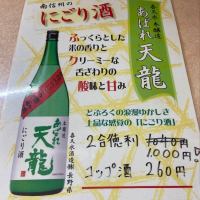 南信州の
にごり酒
喜久水 本醸造
あばれ天龍
ふっくらとした
米の香りと
クリーミーな
舌ざわりの
酸味と甘み
本醸造
あばれ
天龍
にごり酒
喜久水酒造㈱ 長野県
どぶろくの濃厚ゆかしき
上品な感覚の【にごり酒】
2合徳利 1040円
1,000円
コップ酒 260円